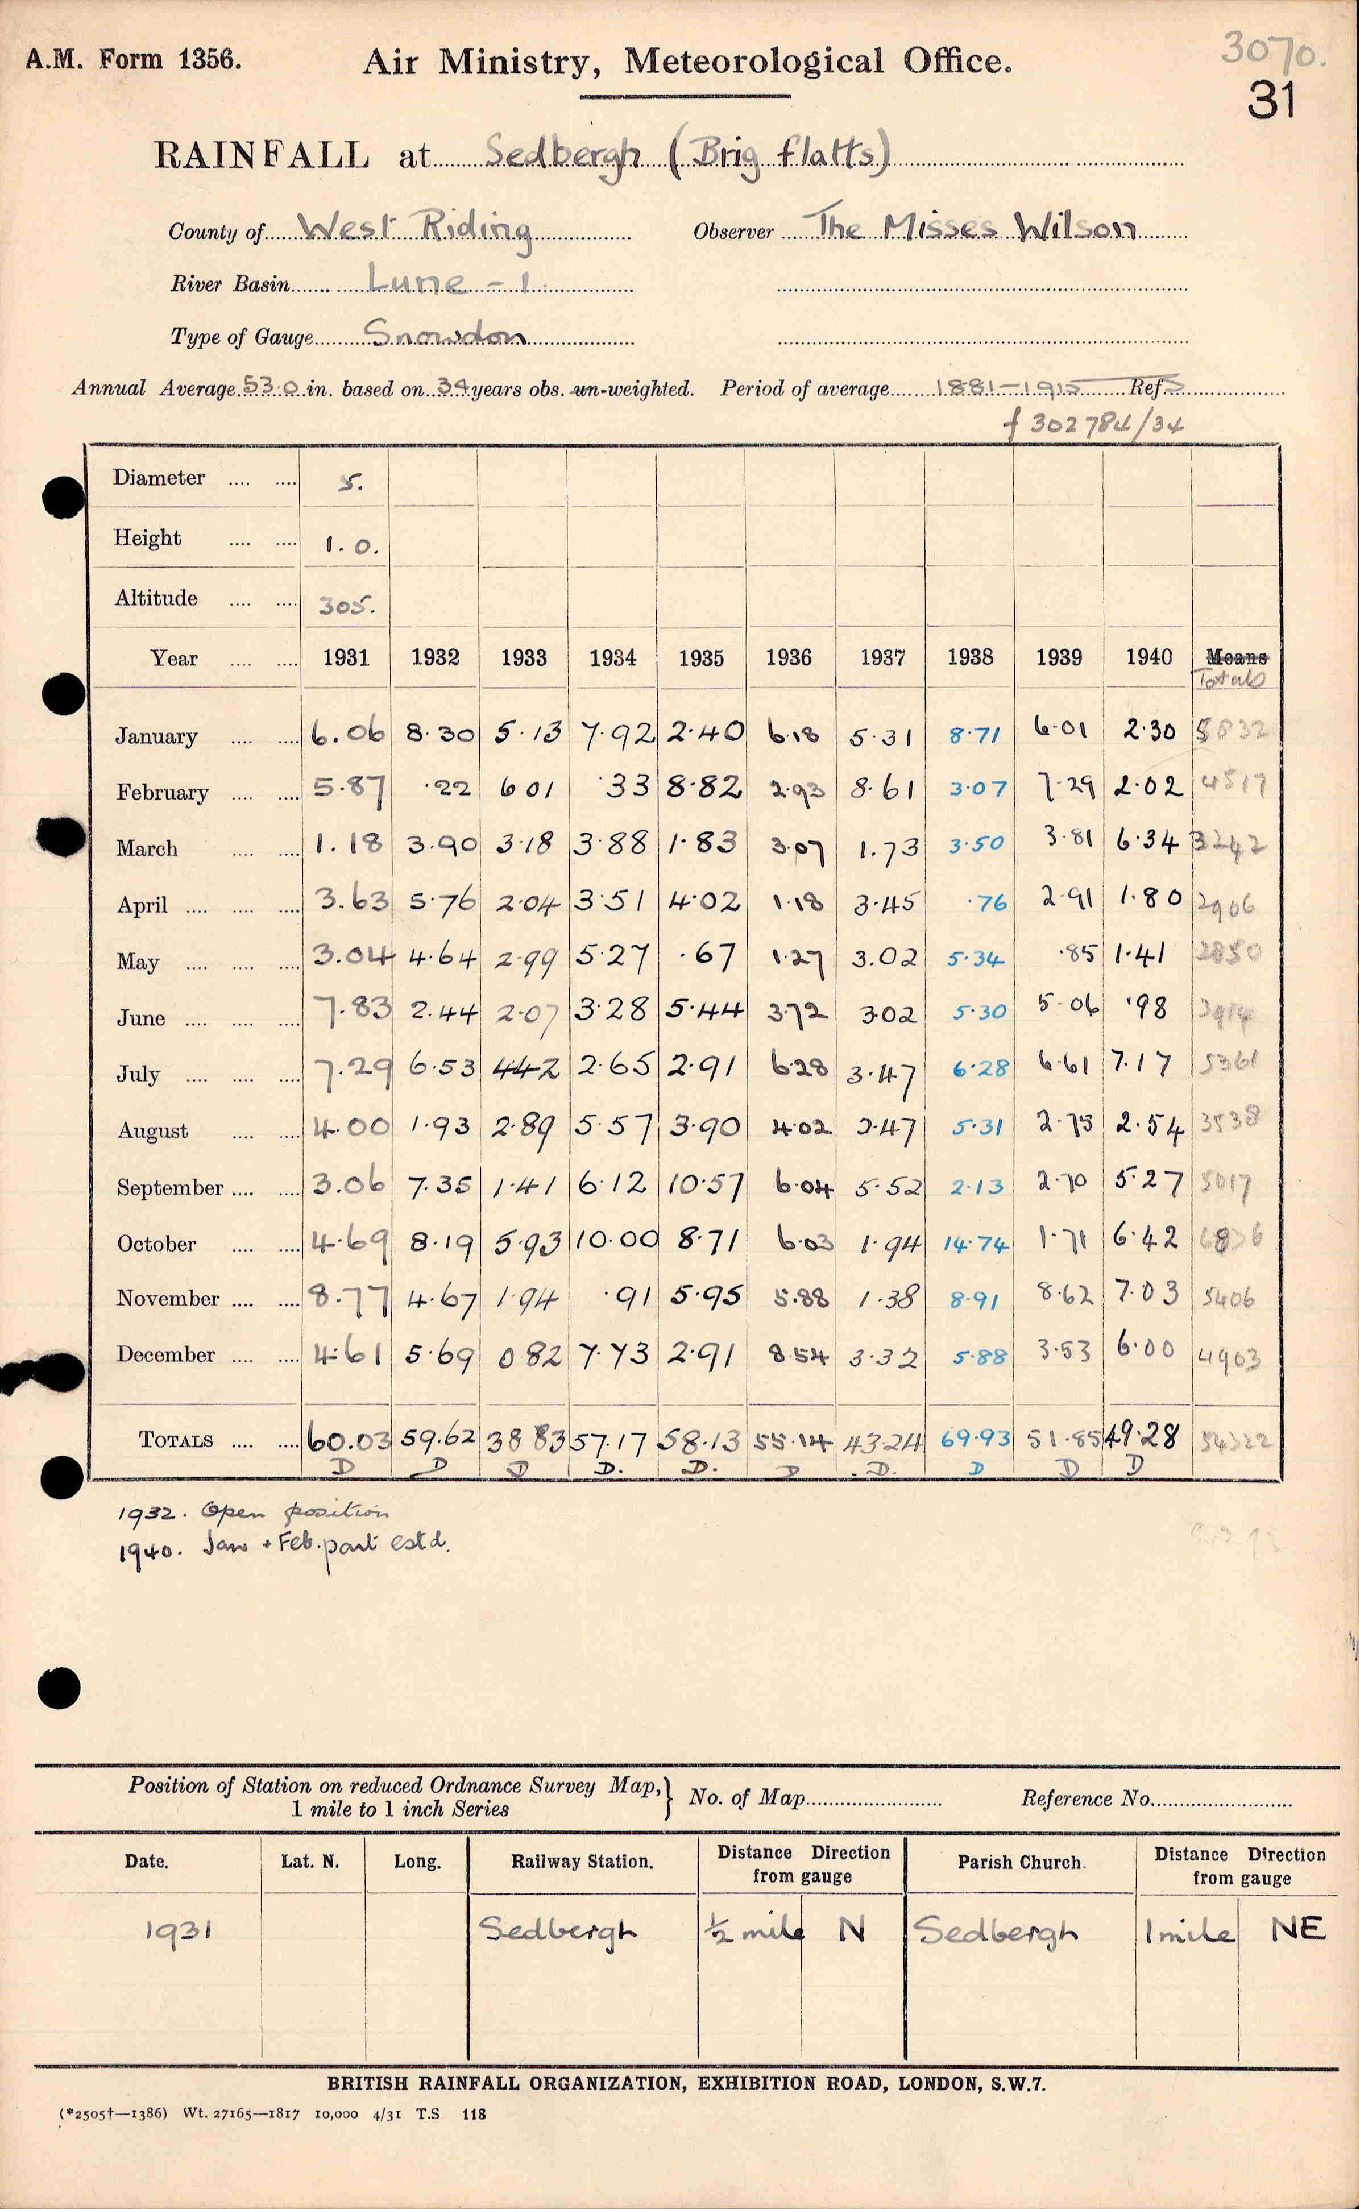 A.M. Form 1356. Air Ministry, Meteorological Office. 3070.
31
RAINFALL at Sedbergh (Brig flatts)
County of West Riding Observer The Misses Wilson
River Basin Lune - 1
Type of Gauge Snowdon
Annual Average 53.0 in. based on 34 years obs. un-weighted. Period of average 1881-1915 Ref S
f 302784/34
Diameter .... .... 5.
Height .... .... 1.0.
Altitude .... .... 305.
Year .... .... 1931 1932 1933 1934 1935 1936 1937 1938 1939 1940 Means
Totals
January .... .... 6.06 8.30 5.13 7.92 2.40 6.18 5.31 8.71 6.01 2.30 5832
February .... .... 5.87 .22 6 01 .33 8.82 2.93 8.61 3.07 7.29 2.02 4517
March .... .... 1.18 3.90 3.18 3.88 1.83 3.07 1.73 3.50 3.81 6.34 3242
April .... .... .... 3.63 5.76 2.04 3.51 4.02 1.18 3.45 .76 2.91 1.80 2906
May .... .... .... 3.04 4.64 2.99 5.27 .67 1.27 3.02 5.34 .85 1.41 2850
June .... .... .... 7.83 2.44 2.07 3.28 5.44 3.72 3.02 5.30 5.06 .98 3914
July .... .... .... 7.29 6.53 4.42 2.65 2.91 6.28 3.47 6.28 6.61 7.17 5361
August .... .... 4.00 1.93 2.89 5.57 3.90 4.02 2.47 5.31 2.75 2.54 3538
September .... .... 3.06 7.35 1.41 6.12 10.57 6.04 5.52 2.13 2.70 5.27 5017
October .... .... 4.69 8.19 5.93 10.00 8.71 6.03 1.94 14.74 1.71 6.42 6836
November .... .... 8.77 4.67 1.94 .91 5.95 5.88 1.38 8.91 8.62 7.03 5406
December .... .... 4.61 5.69 0 82 7.73 2.91 8.54 3.32 5.88 3.53 6.00 4903
TOTALS .... .... 60.03 59.62 38 83 57.17 58.13 55.14 43.24 69.93 51.85 49.28 54322
D D D D. D. D .D. D D D
1932. Open position
1940. Jan + Feb. part estd.
Position of Station on reduced Ordnance Survey Map, } No. of Map Reference No.
1 mile to 1 inch Series
Date. Lat. N. Long. Railway Station. Distance Direction from gauge Parish Church. Distance Direction from gauge
1931 Sedbergh ½ mile N Sedbergh 1 mile NE
BRITISH RAINFALL ORGANIZATION, EXHIBITION ROAD, LONDON, S.W.7.
(*2505†—1386) Wt. 27165—1817 10,000 4/31 T.S 118